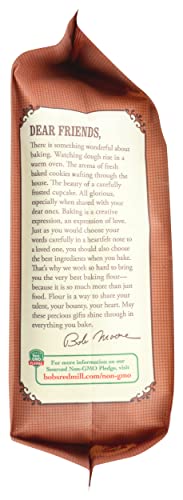 DEAR FRIENDS,
There is something wonderful about
baking. Watching dough rise in a
warm oven. The aroma of fresh
baked cookies wafting through the
house. The beauty of a carefully
frosted cupcake. All glorious,
especially when shared with your
dear ones. Baking is a creative
expression, an expression of love.
Just as you would choose your
words carefully in a heartfelt note to
a loved one, you should also choose
the best ingredients when you bake.
That's why we work so hard to bring
you the very best baking flour—
because it is so much more than just
food. Flour is a way to share your
talent, your bounty, your heart. May
these precious gifts shine through in
everything you bake.
Bob Moore
For more information on our
Sourced Non-GMO Pledge, visit
bobsredmill.com/non-gmo